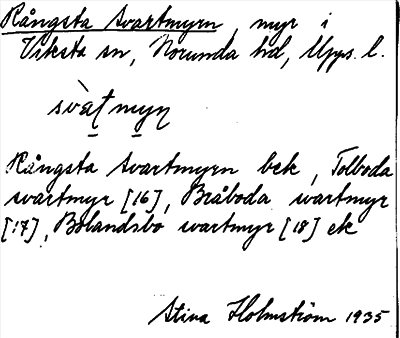 Rångsta Svartmyrn, myr i
Viksta sn, Norunda hd, Upps. l.
svàṭmyṇ
Rångsta Svartmyrn bek, Tolboda
svartmyr [16], Bråboda svartmyr
[17], Bolandsbo svartmyr [18] ek
Stina Holmström 1935